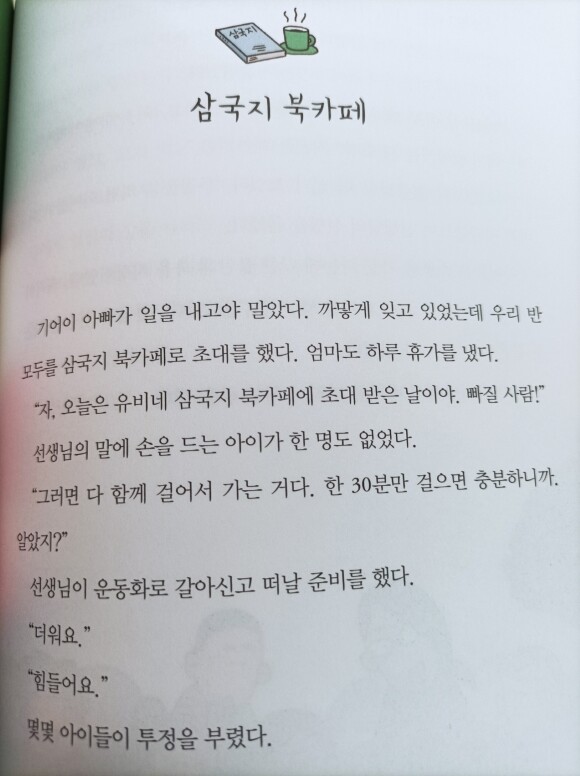 삼국지
삼국지 북카페
기어이 아빠가 일을 내고야 말았다. 까맣게 잊고 있었는데 우리 반
모두를 삼국지 북카페로 초대를 했다. 엄마도 하루 휴가를 냈다.
“자, 오늘은 유비네 삼국지 북카페에 초대 받은 날이야. 빠질 사람!”
선생님의 말에 손을 드는 아이가 한 명도 없었다.
“그러면 다 함께 걸어서 가는 거다. 한 30분만 걸으면 충분하니까.
알았지?”
선생님이 운동화로 갈아신고 떠날 준비를 했다.
“더워요.”
“힘들어요.”
몇몇 아이들이 투정을 부렸다.